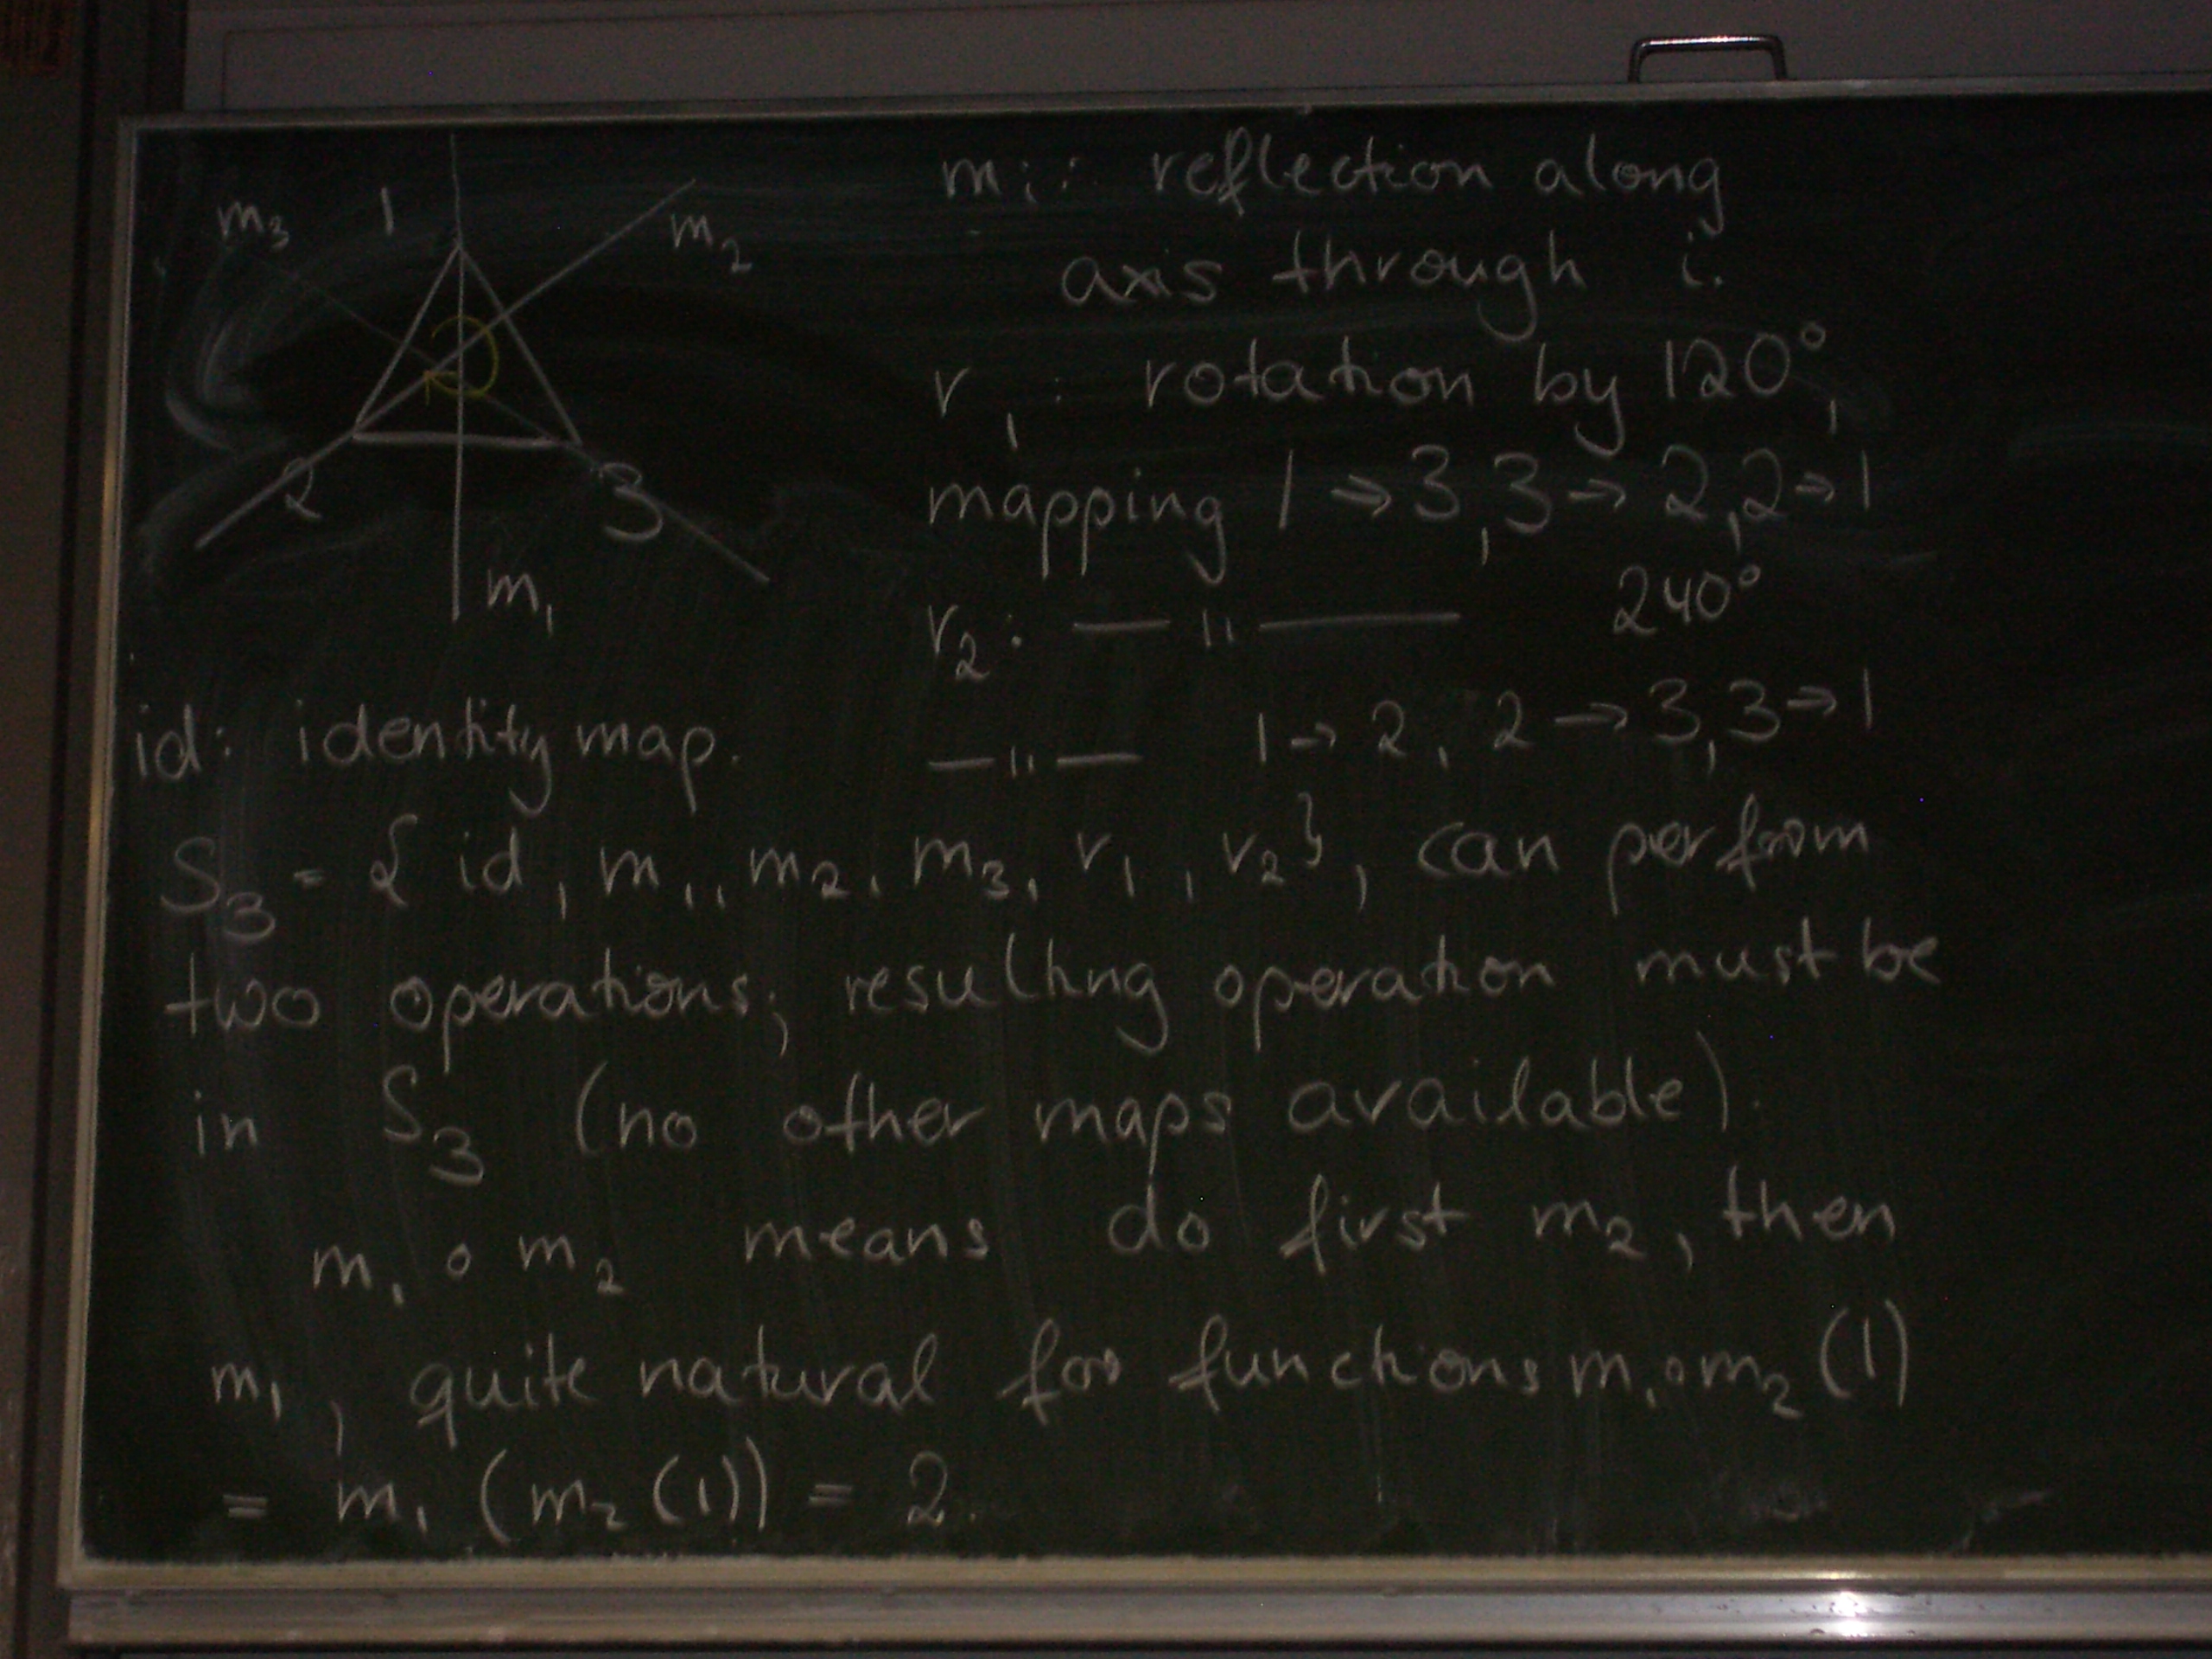 m₃ 1 m₂
2 3
m₁
mᵢ: reflection along
axis through i.
r₁: rotation by 120°,
mapping 1 → 3, 3 → 2, 2 → 1
r₂: —〃— 240°
id: identity map. —〃— 1 → 2, 2 → 3, 3 → 1
S₃ = { id, m₁, m₂, m₃, r₁, r₂}, can perfrom
two operations; resulting operation must be
in S₃ (no other maps available).
m₁ ∘ m₂ means do first m₂, then
m₁, quite natural for functions m₁∘m₂ (1)
= m₁ (m₂ (1)) = 2.